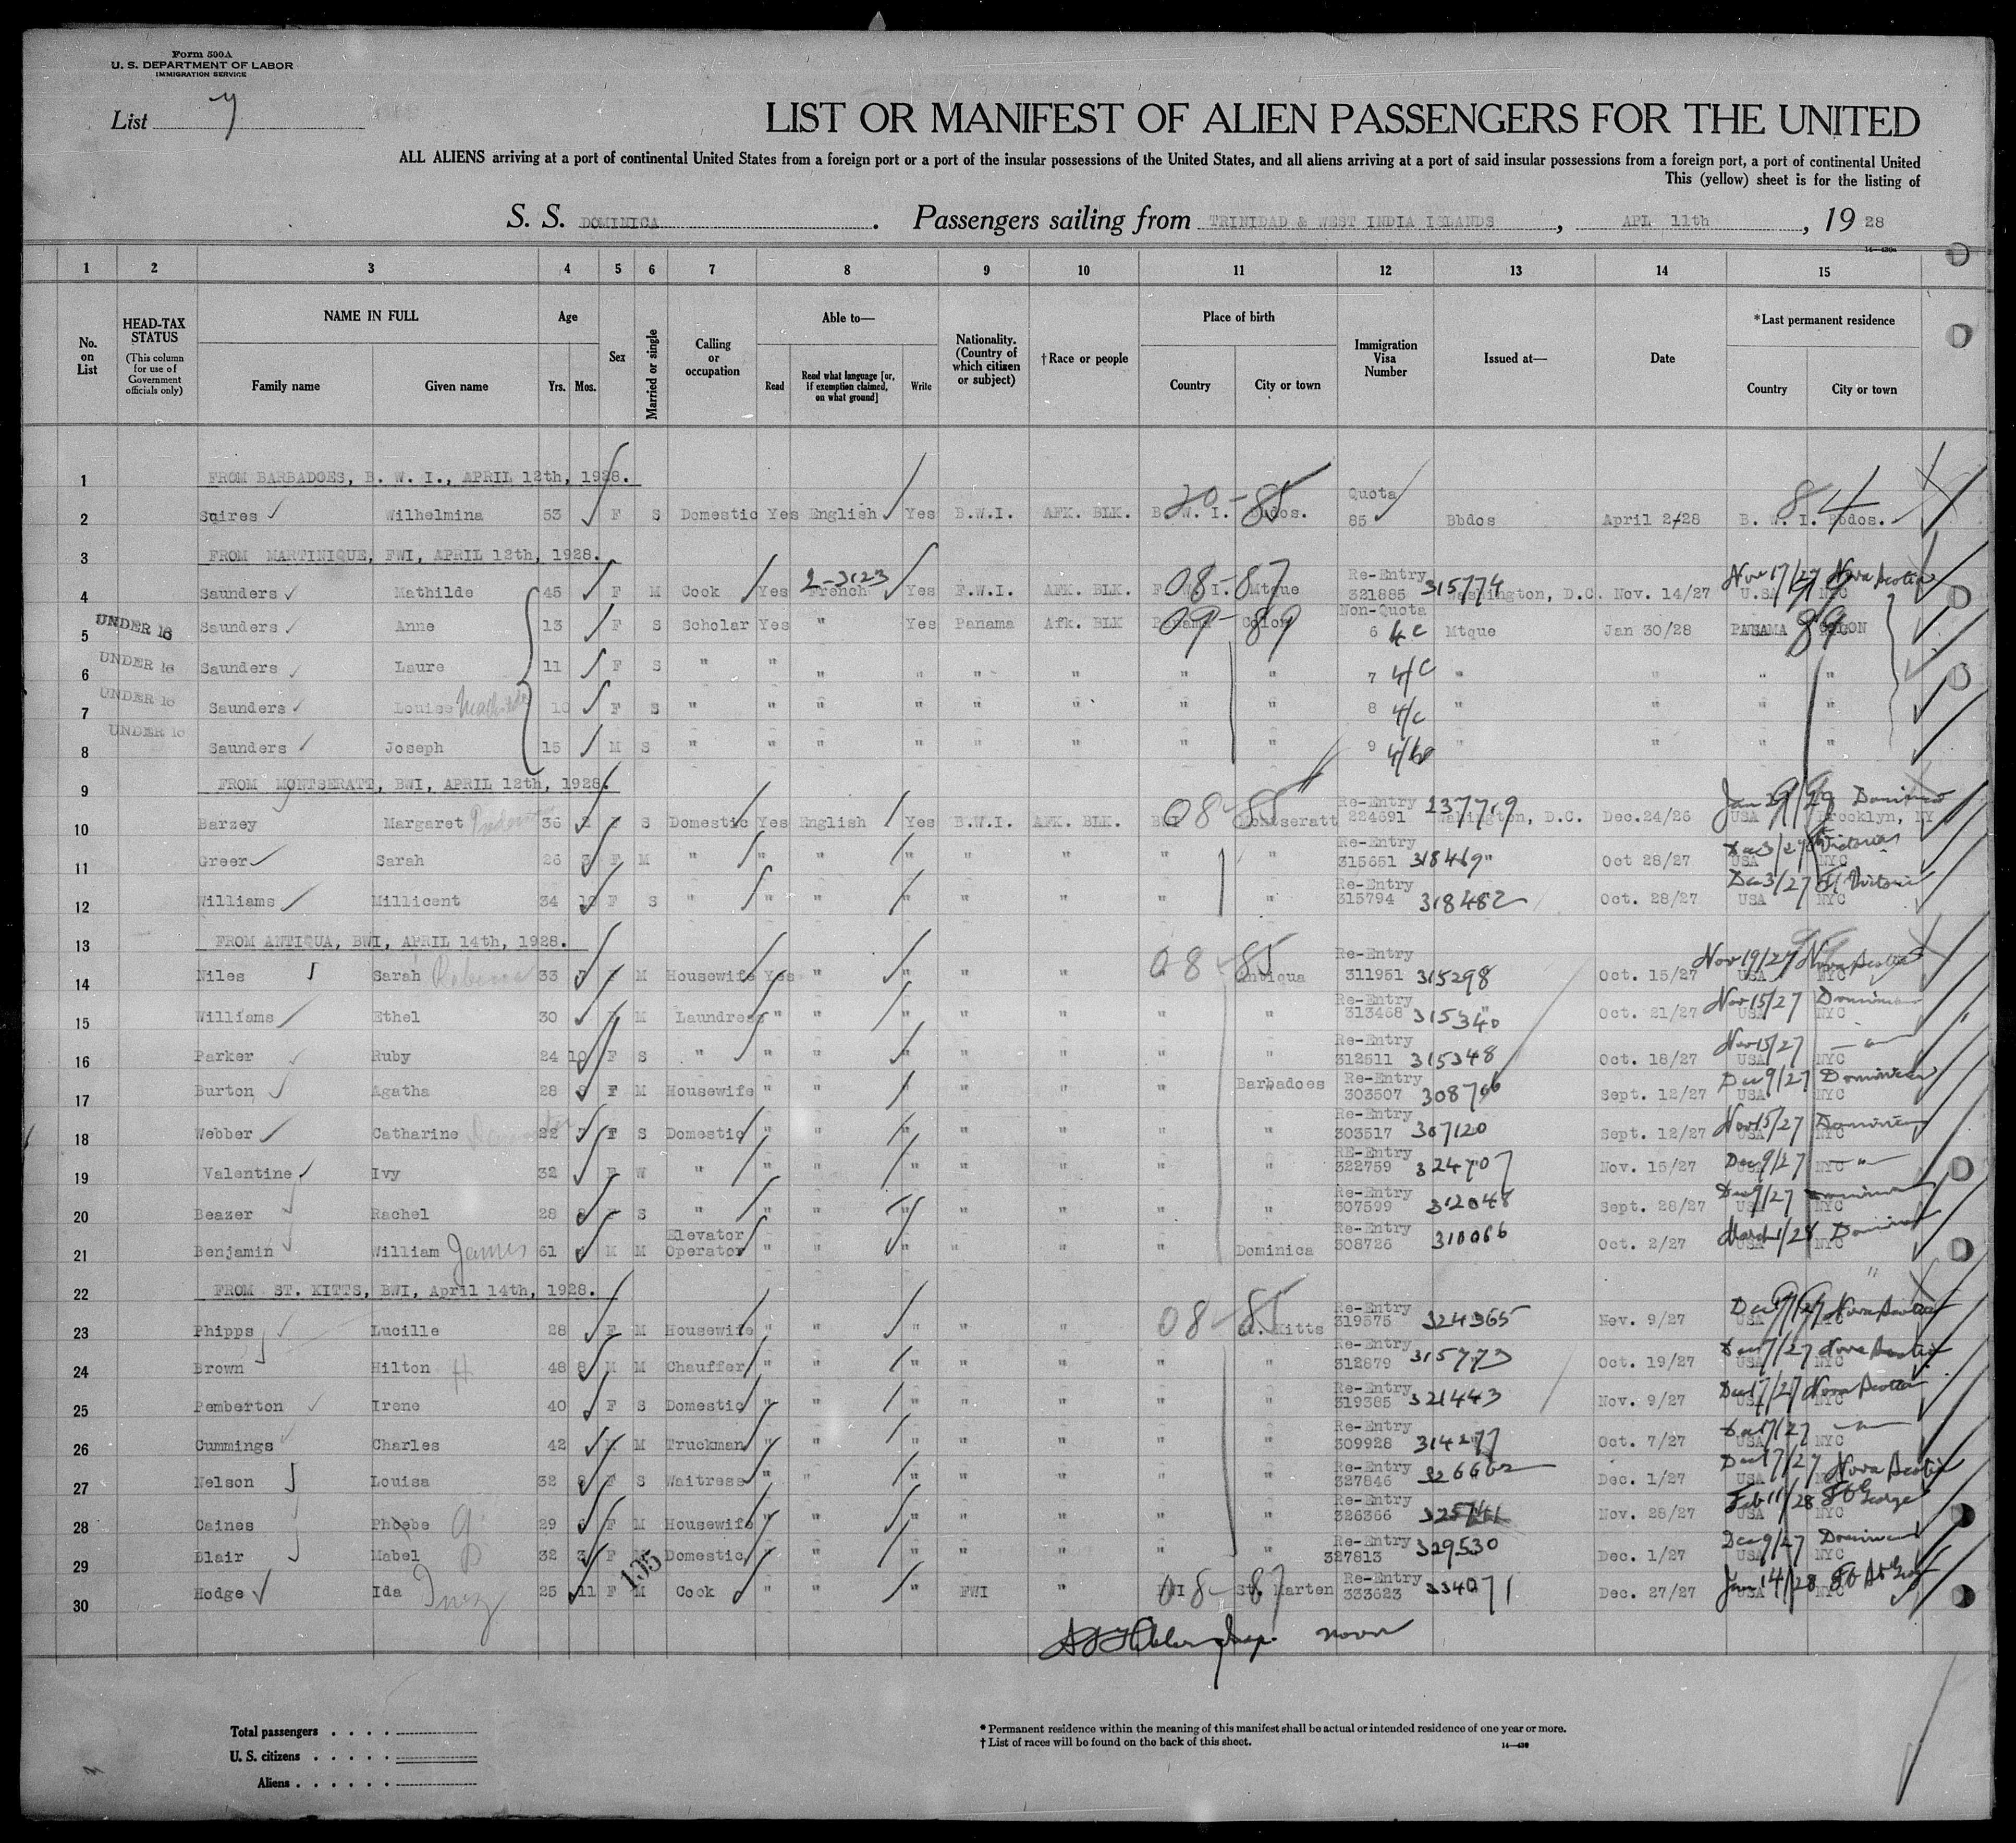 Form 500A
U. S. DEPARTMENT OF LABOR
IMMIGRATION SERVICE
List 7
LIST OR MANIFEST OF ALIEN PASSENGERS FOR THE UNITED
ALL ALIENS arriving at a port of continental United States from a foreign port or a port of the insular possessions of the United States, and all aliens arriving at a port of said insular possessions from a foreign port, a port of continental United
This (yellow) sheet is for the listing of
S. S. DOMINICA. Passengers sailing from TRINIDAD & WEST INDIA ISLANDS, APL 11th, 19 28
1 2 3 4 5 6 7 8 9 10 11 12 13 14 15
No. on List
HEAD-TAX STATUS (This column for use of Government officials only)
NAME IN FULL Family name Given name
Age Yrs. Mos.
Sex
Married or single
Calling or occupation
Able to— Read Read what language [or, if exemption claimed, on what ground] Write
Nationality. (Country of which citizen or subject)
†Race or people
Place of birth Country City or town
Immigration Visa Number
Issued at—
Date
*Last permanent residence Country City or town
1 FROM BARBADOES, B. W. I., APRIL 12th, 1928.
2 Squires Wilhelmina 53 F S Domestic Yes English Yes B.W.I. AFK. BLK. B.W.I. Bbdos. 20-85 Quota 85 Bbdos April 2-28 B. W. I. Bbdos. 84
3 FROM MARTINIQUE, FWI, APRIL 12th, 1928.
4 Saunders Mathilde 45 F M Cook Yes French 2-3123 Yes F.W.I. AFK. BLK. F.W.I. Mtque 08-87 Re-Entry 321885 315774 Washington, D.C. Nov. 14/27 U.SA NYC Nov 17/27 Nova Scotia
5 UNDER 16 Saunders Anne 13 F S Scholar Yes " Yes Panama Afk. BLK Panama Colon 09-89 Non-Quota 6 4c Mtque Jan 30/28 PANAMA COLON 89
6 UNDER 16 Saunders Laure 11 F S " " " " " " " " 7 4/c " " " "
7 UNDER 16 Saunders Louise Mathilde 10 F S " " " " " " " " 8 4/c " " " "
8 UNDER 16 Saunders Joseph 15 M S " " " " " " " " 9 " " " "
9 FROM MONTSERATT, BWI, APRIL 12th, 1928.
10 Barzey Margaret 36 F S Domestic Yes English Yes B.W.I. AFK. BLK. BWI Montseratt 08-85 Re-Entry 224691 237719 Washington, D.C. Dec.24/26 USA Brooklyn, NY
11 Greer Sarah 26 F M " " " " " " " Re-Entry 315651 318469 " Oct 28/27 USA NYC Dec 3/27 Victoria
12 Williams Millicent 34 10 F S " " " " " " " Re-Entry 315794 318482 Oct. 28/27 USA NYC Dec 3/27
13 FROM ANTIQUA, BWI, APRIL 14th, 1928.
14 Niles Sarah Rebecca 33 F M Housewife Yes " " " " Antiqua 08-85 Re-Entry 311951 315298 Oct. 15/27 USA NYC Nov 19/27 Nova Scotia
15 Williams Ethel 30 M Laundress " " " " " " " Re-Entry 313468 315340 Oct. 21/27 USA NYC Nov 15/27 Dominica
16 Parker Ruby 24 10 F S " " " " " " " " Re-Entry 312511 315348 Oct. 18/27 USA NYC Nov 15/27 "
17 Burton Agatha 28 F M Housewife " " " " " " Barbadoes Re-Entry 303507 308766 Sept. 12/27 USA NYC Dec 9/27 Dominica
18 Webber Catharine 22 F S Domestic " " " " " " " Re-Entry 303517 307120 Sept. 12/27 USA NYC Nov 15/27 Dominica
19 Valentine Ivy 32 F W " " " " " " " " RE-Entry 322759 324707 Nov. 15/27 NYC Dec 9/27 "
20 Beazer Rachel 28 S " " " " " " " " Re-Entry 307599 312048 Sept. 28/27 USA NYC Dec 9/27 Dominica
21 Benjamin William James 61 M M Elevator Operator " " " " " " Dominica Re-Entry 308726 310066 Oct. 2/27 USA NYC March 1/28 Dominica
22 FROM ST. KITTS, BWI, April 14th, 1928.
23 Phipps Lucille 28 F M Housewife " " " " " St. Kitts 08-85 Re-Entry 319575 324365 Nov. 9/27 USA NYC Nova Scotia
24 Brown Hilton H 48 8 M M Chauffer " " " " " " " Re-Entry 312879 315773 Oct. 19/27 USA NYC Nova Scotia
25 Pemberton Irene 40 F S Domestic " " " " " " " Re-Entry 319385 321443 Nov. 9/27 USA NYC Dec 17/27 Nova Scotia
26 Cummings Charles 42 M M Truckman " " " " " " " Re-Entry 309928 314277 Oct. 7/27 USA NYC Dec 17/27 "
27 Nelson Louisa 32 8 F S Waitress " " " " " " " Re-Entry 327846 326662 Dec. 1/27 USA NYC Dec 17/27 Nova Scotia
28 Caines Phoebe 29 F M Housewife " " " " " " " Re-Entry 326366 Nov. 28/27 USA NYC Feb 11/28 Ft George
29 Blair Mabel 32 3 F Domestic " " " " " " " Re-Entry 327813 329530 Dec. 1/27 USA NYC Dec 9/27 Dominica
30 Hodge Ida Inez 25 11 F M Cook " " " FWI " FWI St. Marten 08-87 Re-Entry 333623 334071 Dec. 27/27 USA NYC Jan 14/28
135
Total passengers
U. S. citizens
Aliens
* Permanent residence within the meaning of this manifest shall be actual or intended residence of one year or more.
† List of races will be found on the back of this sheet.
14—430